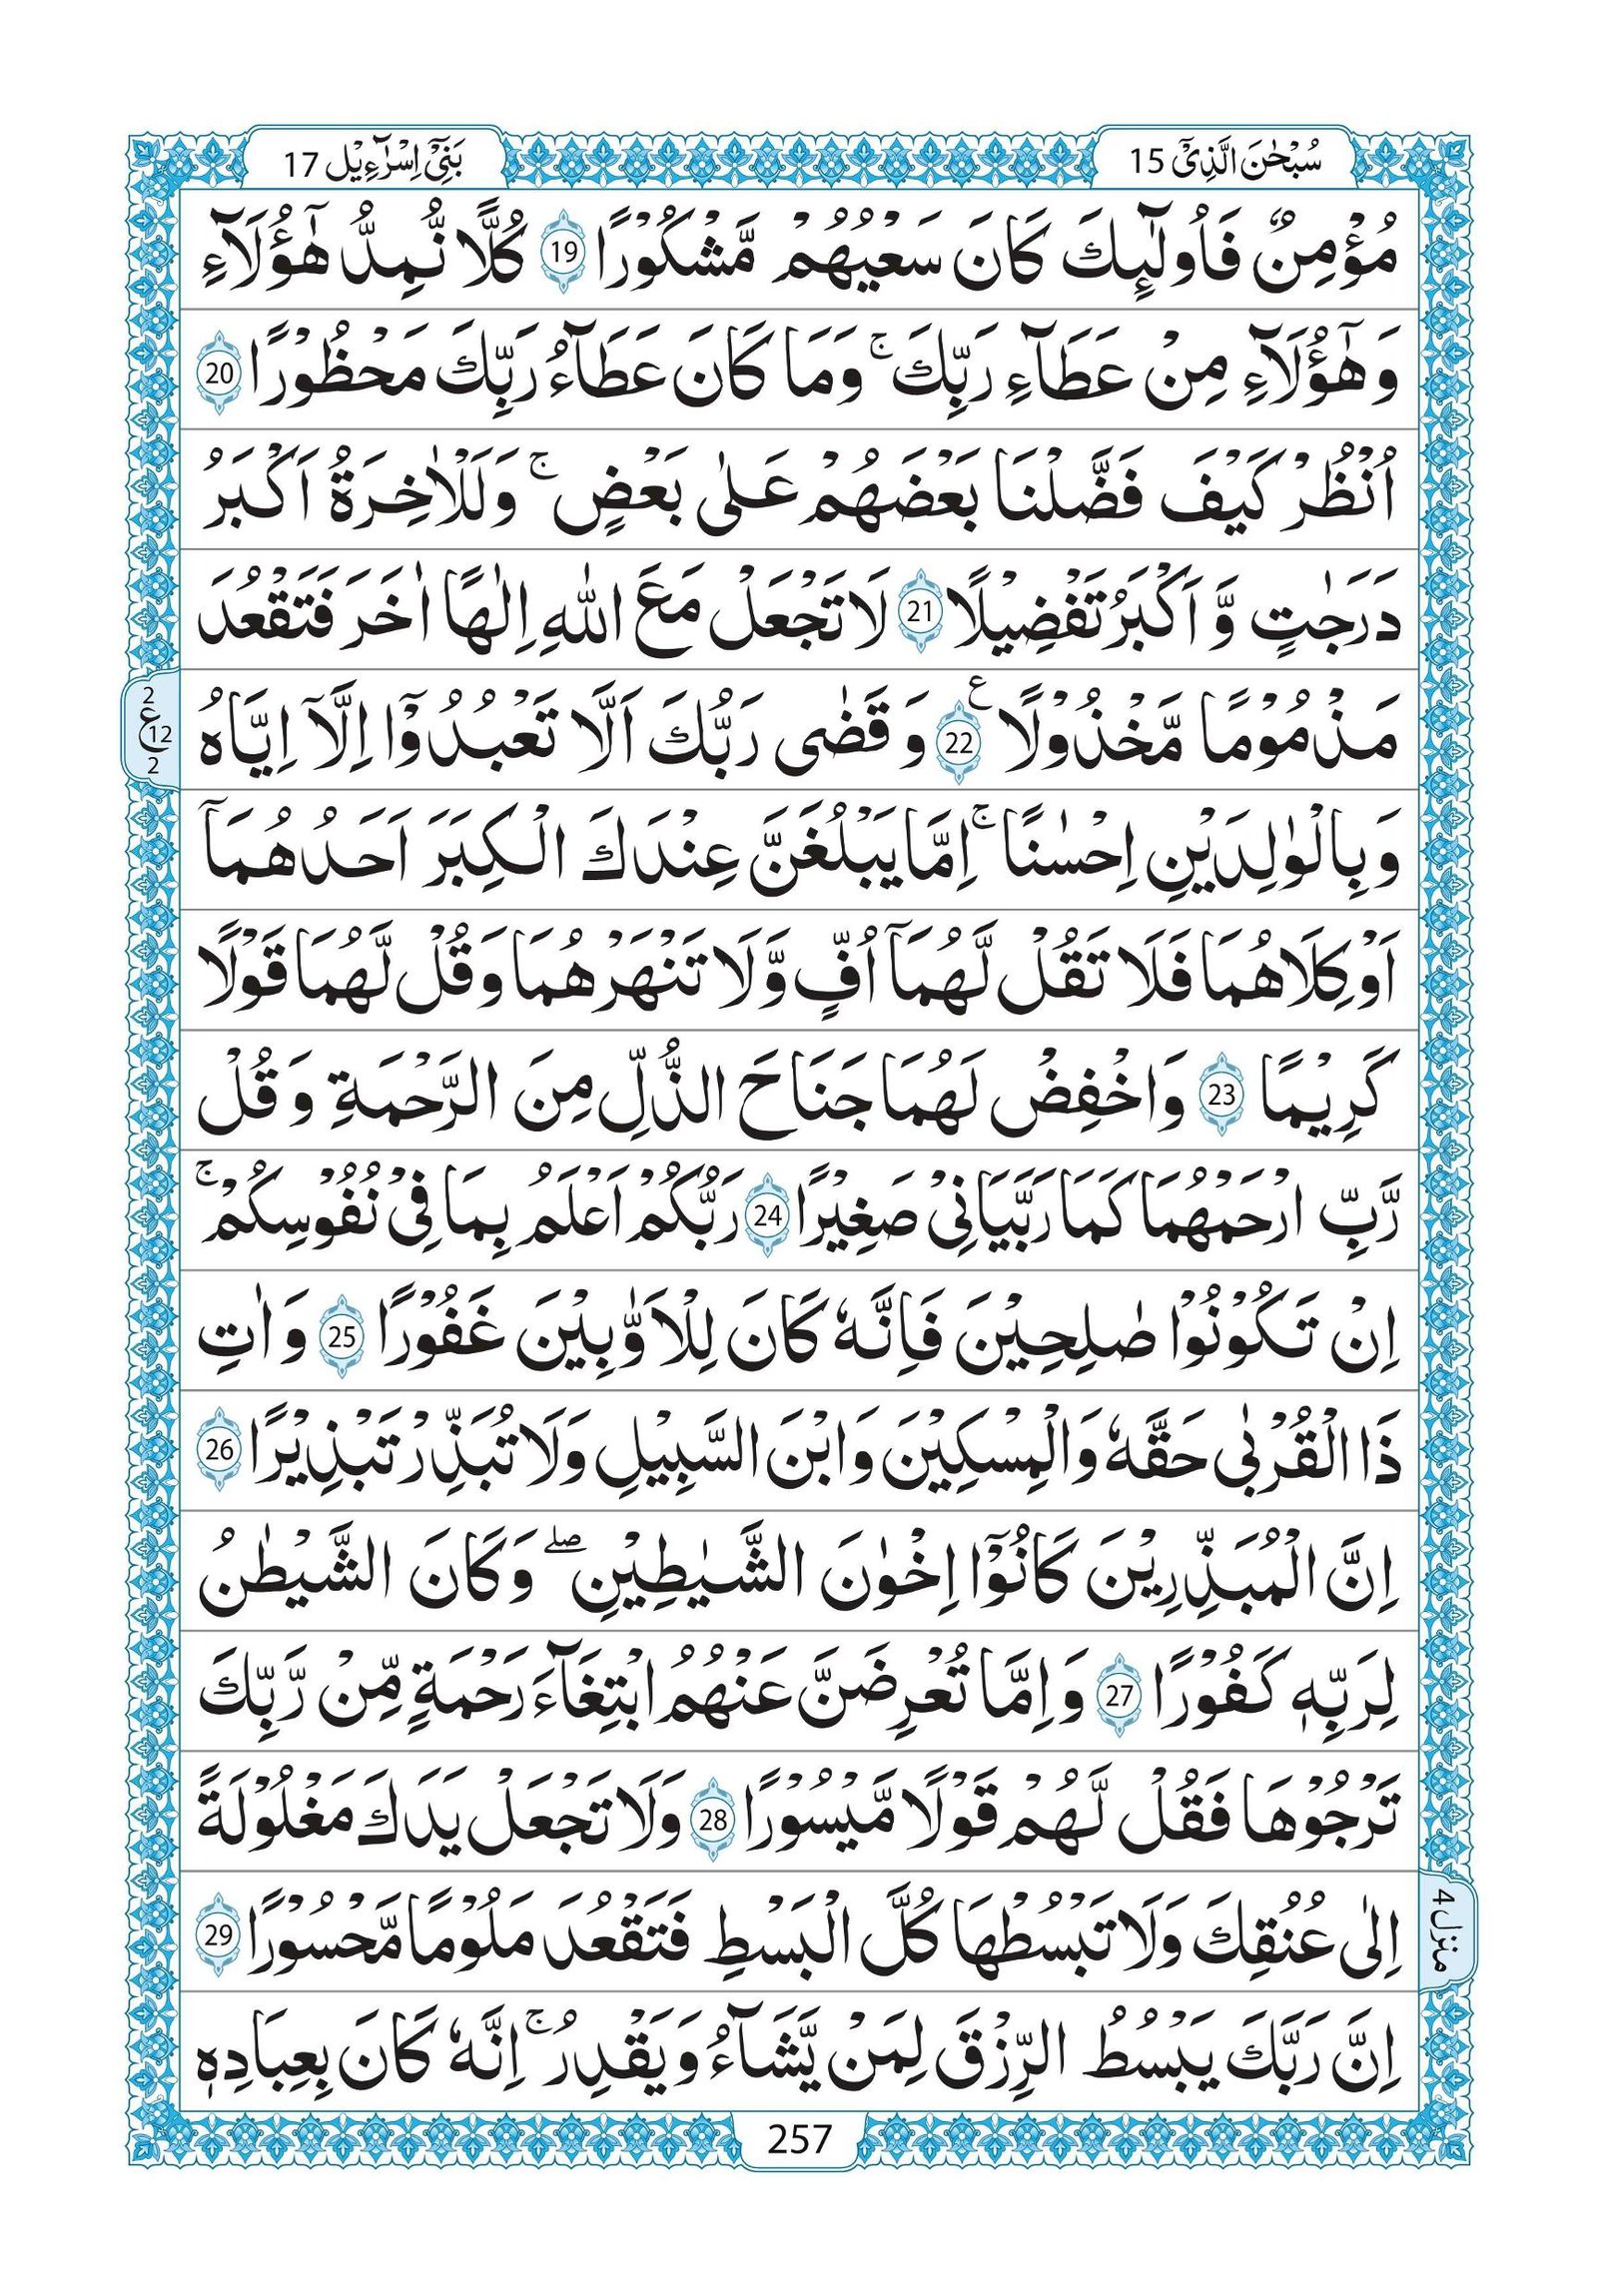 سُبْحٰنَ الَّذِیْۤ 15
بَنِیْۤ اِسْرَآءِیْل 17
مُؤْمِنٌ فَاُولٰٓىِٕكَ كَانَ سَعْیُهُمْ مَّشْكُوْرًا 19 كُلًّا نُّمِدُّ هٰۤؤُلَآءِ
وَ هٰۤؤُلَآءِ مِنْ عَطَآءِ رَبِّكَ ۚ وَمَا كَانَ عَطَآءُ رَبِّكَ مَحْظُوْرًا 20
اُنْظُرْ كَیْفَ فَضَّلْنَا بَعْضَهُمْ عَلٰی بَعْضٍ ۚ وَلَلْاٰخِرَةُ اَكْبَرُ
دَرَجٰتٍ وَّ اَكْبَرُ تَفْضِیْلًا 21 لَا تَجْعَلْ مَعَ اللّٰهِ اِلٰهًا اٰخَرَ فَتَقْعُدَ
مَذْمُوْمًا مَّخْذُوْلًا 22 ع وَ قَضٰی رَبُّكَ اَلَّا تَعْبُدُوْۤا اِلَّاۤ اِیَّاهُ
2 ع 12 2
وَ بِالْوٰلِدَیْنِ اِحْسٰنًا ۚ اِمَّا یَبْلُغَنَّ عِنْدَكَ الْكِبَرَ اَحَدُهُمَاۤ
اَوْ كِلَاهُمَا فَلَا تَقُلْ لَّهُمَاۤ اُفٍّ وَّلَا تَنْهَرْهُمَا وَقُلْ لَّهُمَا قَوْلًا
كَرِیْمًا 23 وَاخْفِضْ لَهُمَا جَنَاحَ الذُّلِّ مِنَ الرَّحْمَةِ وَ قُلْ
رَّبِّ ارْحَمْهُمَا كَمَا رَبَّیَانِیْ صَغِیْرًا 24 رَبُّكُمْ اَعْلَمُ بِمَا فِیْ نُفُوْسِكُمْ ۚ
اِنْ تَكُوْنُوْا صٰلِحِیْنَ فَاِنَّهٗ كَانَ لِلْاَوَّابِیْنَ غَفُوْرًا 25 وَ اٰتِ
ذَا الْقُرْبٰی حَقَّهٗ وَالْمِسْكِیْنَ وَابْنَ السَّبِیْلِ وَلَا تُبَذِّرْ تَبْذِیْرًا 26
اِنَّ الْمُبَذِّرِیْنَ كَانُوْۤا اِخْوٰنَ الشَّیٰطِیْنِ ۖ وَكَانَ الشَّیْطٰنُ
لِرَبِّهٖ كَفُوْرًا 27 وَ اِمَّا تُعْرِضَنَّ عَنْهُمُ ابْتِغَآءَ رَحْمَةٍ مِّنْ رَّبِّكَ
تَرْجُوْهَا فَقُلْ لَّهُمْ قَوْلًا مَّیْسُوْرًا 28 وَلَا تَجْعَلْ یَدَكَ مَغْلُوْلَةً
اِلٰی عُنُقِكَ وَلَا تَبْسُطْهَا كُلَّ الْبَسْطِ فَتَقْعُدَ مَلُوْمًا مَّحْسُوْرًا 29
منزل ٤
اِنَّ رَبَّكَ یَبْسُطُ الرِّزْقَ لِمَنْ یَّشَآءُ وَ یَقْدِرُ ۚ اِنَّهٗ كَانَ بِعِبَادِهٖ
257